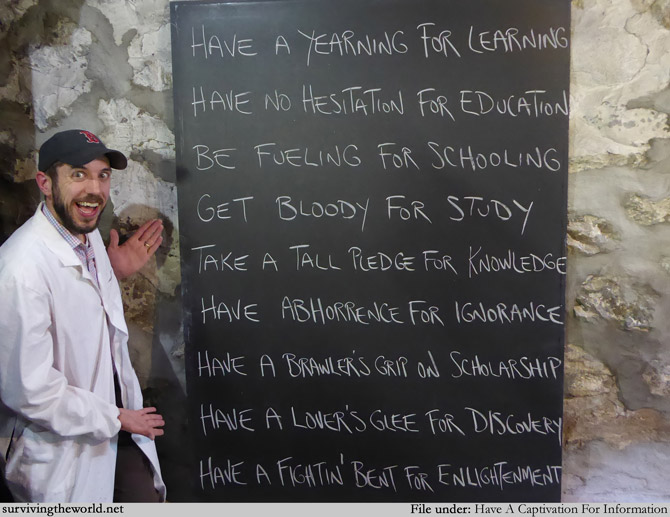 HAVE A YEARNING FOR LEARNING
HAVE NO HESITATION FOR EDUCATION
BE FUELING FOR SCHOOLING
GET BLOODY FOR STUDY
TAKE A TALL PLEDGE FOR KNOWLEDGE
HAVE ABHORRENCE FOR IGNORANCE
HAVE A BRAWLER'S GRIP ON SCHOLARSHIP
HAVE A LOVER'S GLEE FOR DISCOVERY
HAVE A FIGHTIN' BENT FOR ENLIGHTENMENT
B
survivingtheworld.net
File under: Have A Captivation For Information